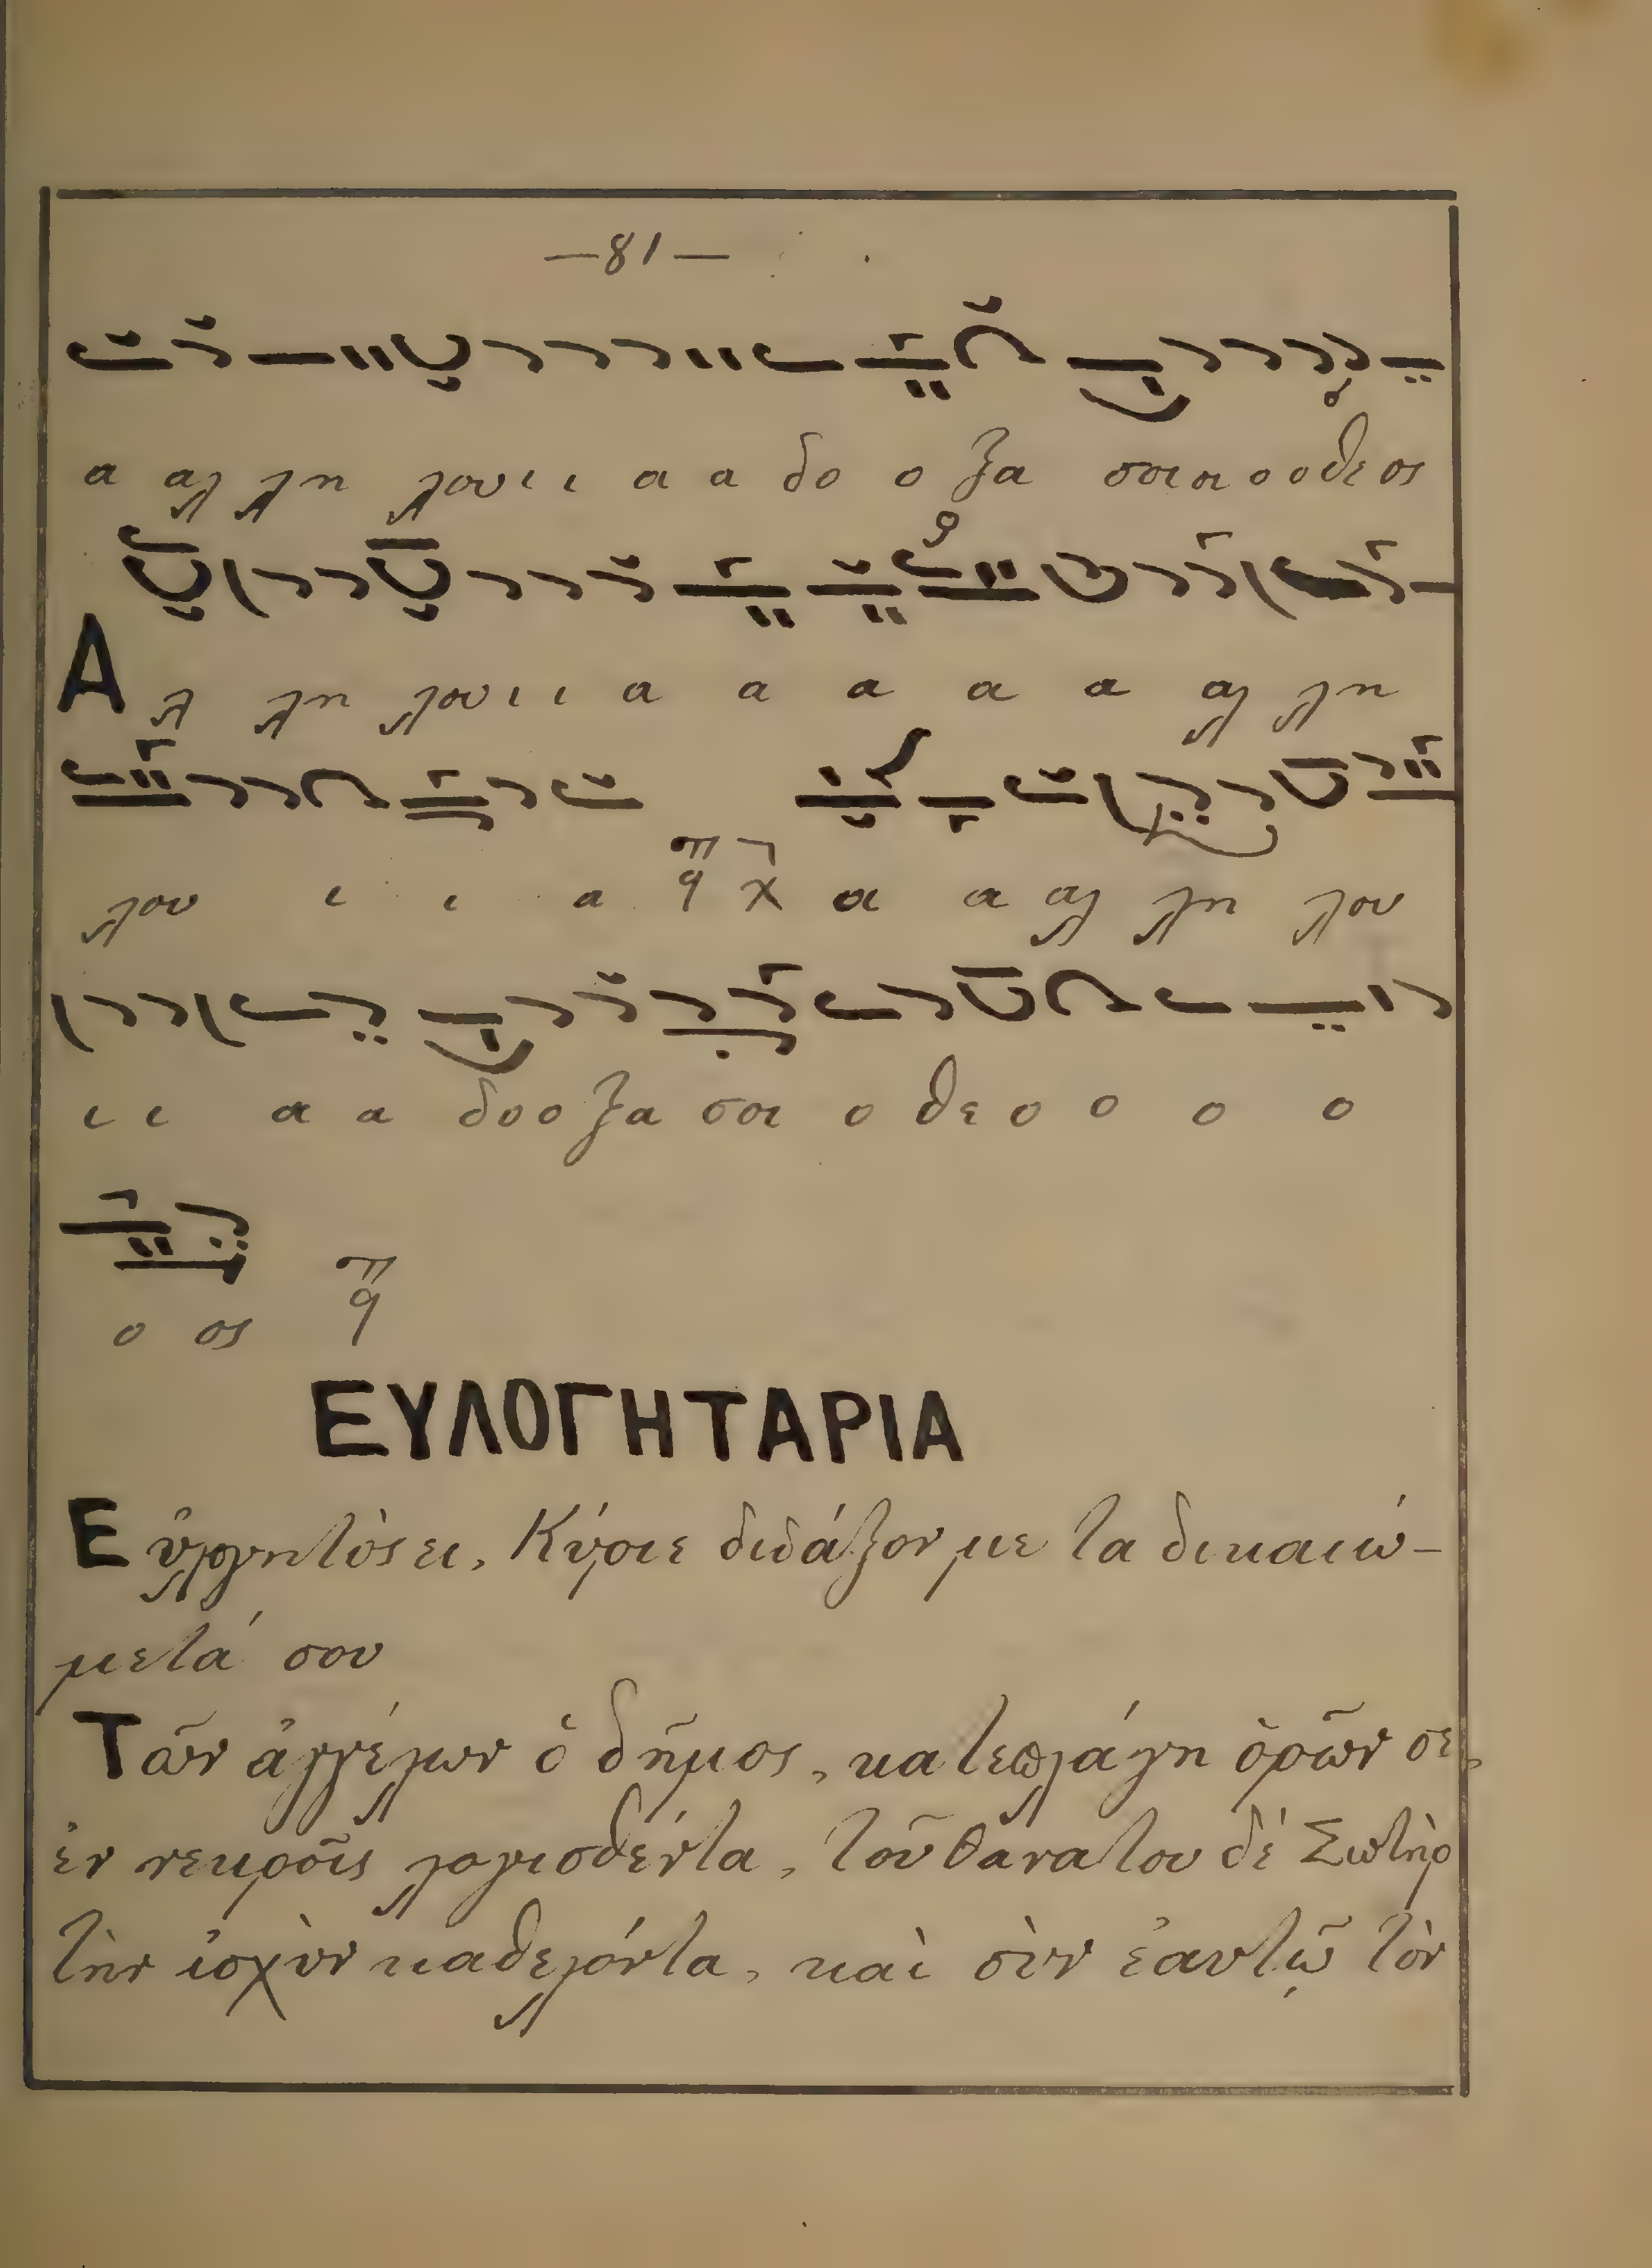 —81—
α αλ λη λου ι ι α α δο ο ξα σοι οι ο ο θε ος
Α λ λη λου ι ι α α α α α αλ λη
λου ι ι α α α αλ λη λου
ι ι α α δο ο ξα σοι ο θε ο ο ο ο
ο ος
ΕΥΛΟΓΗΤΑΡΙΑ
Εὐλογητὸς ει, Κύριε δίδάξον με τα δικαιώ-
ματά σου
Τῶν ἀγγέλων ὁ δῆμος, κατεπλάγη ὁρῶν σε,
ἐν νεκροῖς λογισθέντα, τοῦ θανατου δὲ Σωτὴρ
τὴν ἰσχὺν καθελόντα, καὶ σὺν ἑαυτῷ τὸν